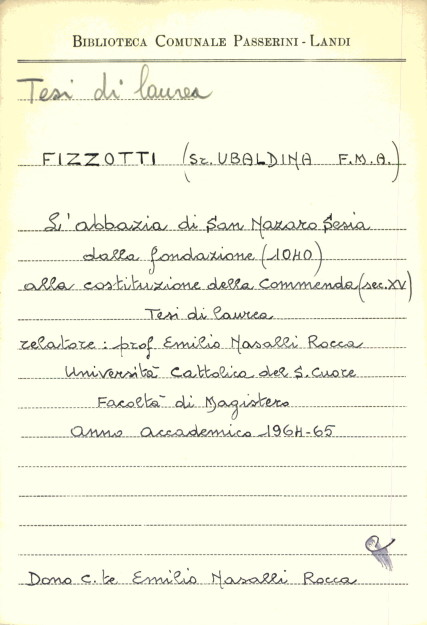 BIBLIOTECA COMUNALE PASSERINI - LANDI
Tesi di laurea
FIZZOTTI (Sr. UBALDINA F.M.A.)
L'abbazia di San Nazaro Sesia
dalla fondazione (1040)
alla costituzione della Commenda (sec. XV)
Tesi di laurea
relatore: prof Emilio Nasalli Rocca
Università Cattolica del S. Cuore
Facoltà di Magistero
Anno accademico 1964-65
Dono c.te Emilio Nasalli Rocca